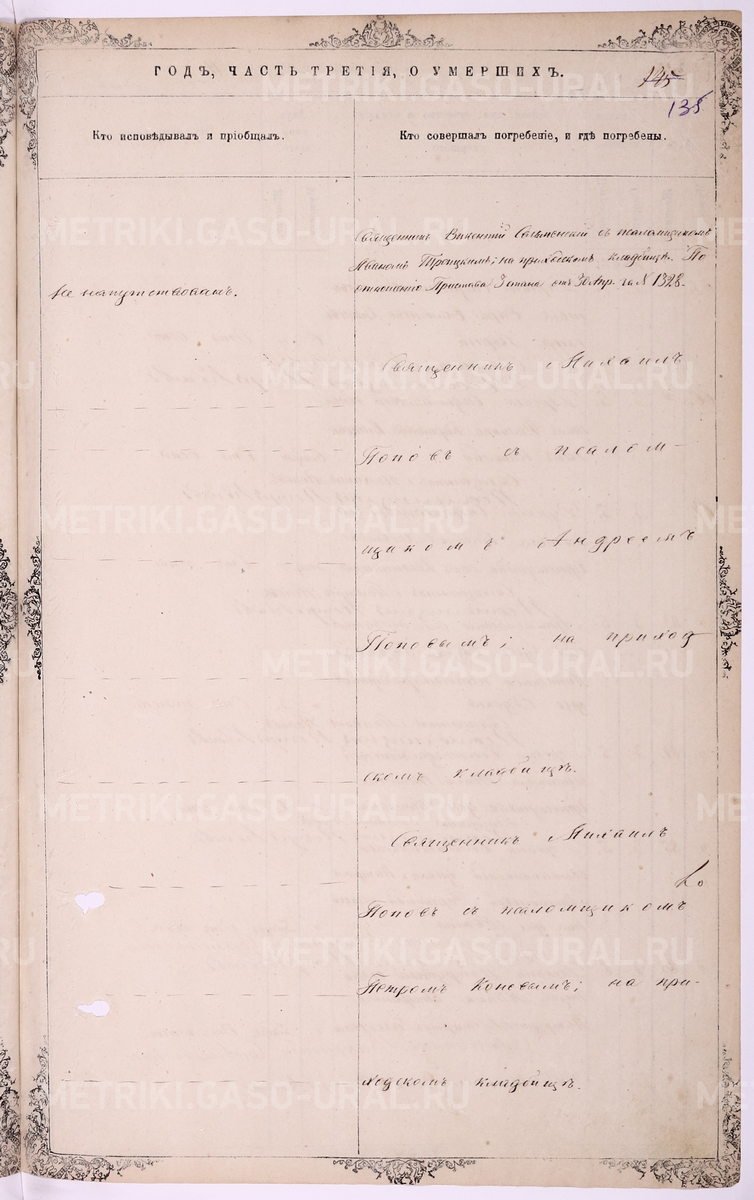 ГОДЪ, ЧАСТЬ ТРЕТІЯ, О УМЕРШИХЪ.
145
135
Кто исповѣдывалъ и пріобщалъ.
Кто совершалъ погребеніе, и гдѣ погребены.
Священникъ Викентій съ псаломщикомъ
Иваномъ Троицкимъ; на приходскомъ кладбищѣ. По
отношенію Пристава 3 стана отъ 30 Апр. за N 1328.
Не напутствованъ.
Священникъ Михаилъ
Поповъ съ псалом-
щикомъ Андреемъ
Поповымъ; на приход
скомъ кладбищѣ.
Священникъ Михаилъ
Поповъ съ псаломщикомъ
Петромъ Коновымъ; на при-
ходскомъ кладбищѣ.
METRIKI.GASO-URAL.RU